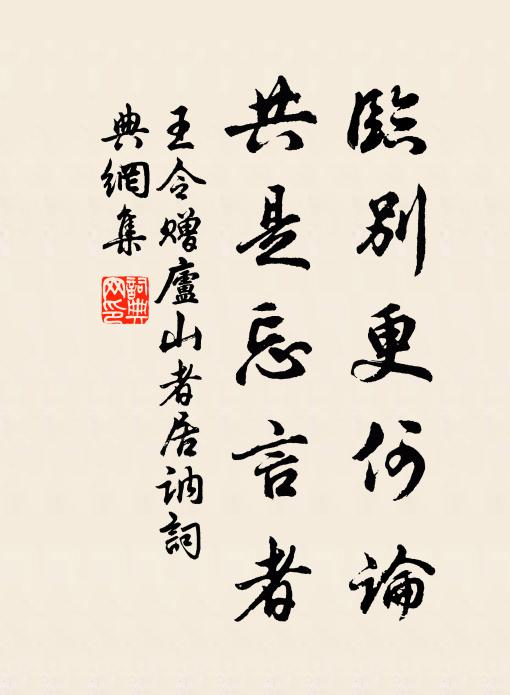 臨別更何論
共是忘言者
王令贈廬山者居訥詞
典網集
詞典網印